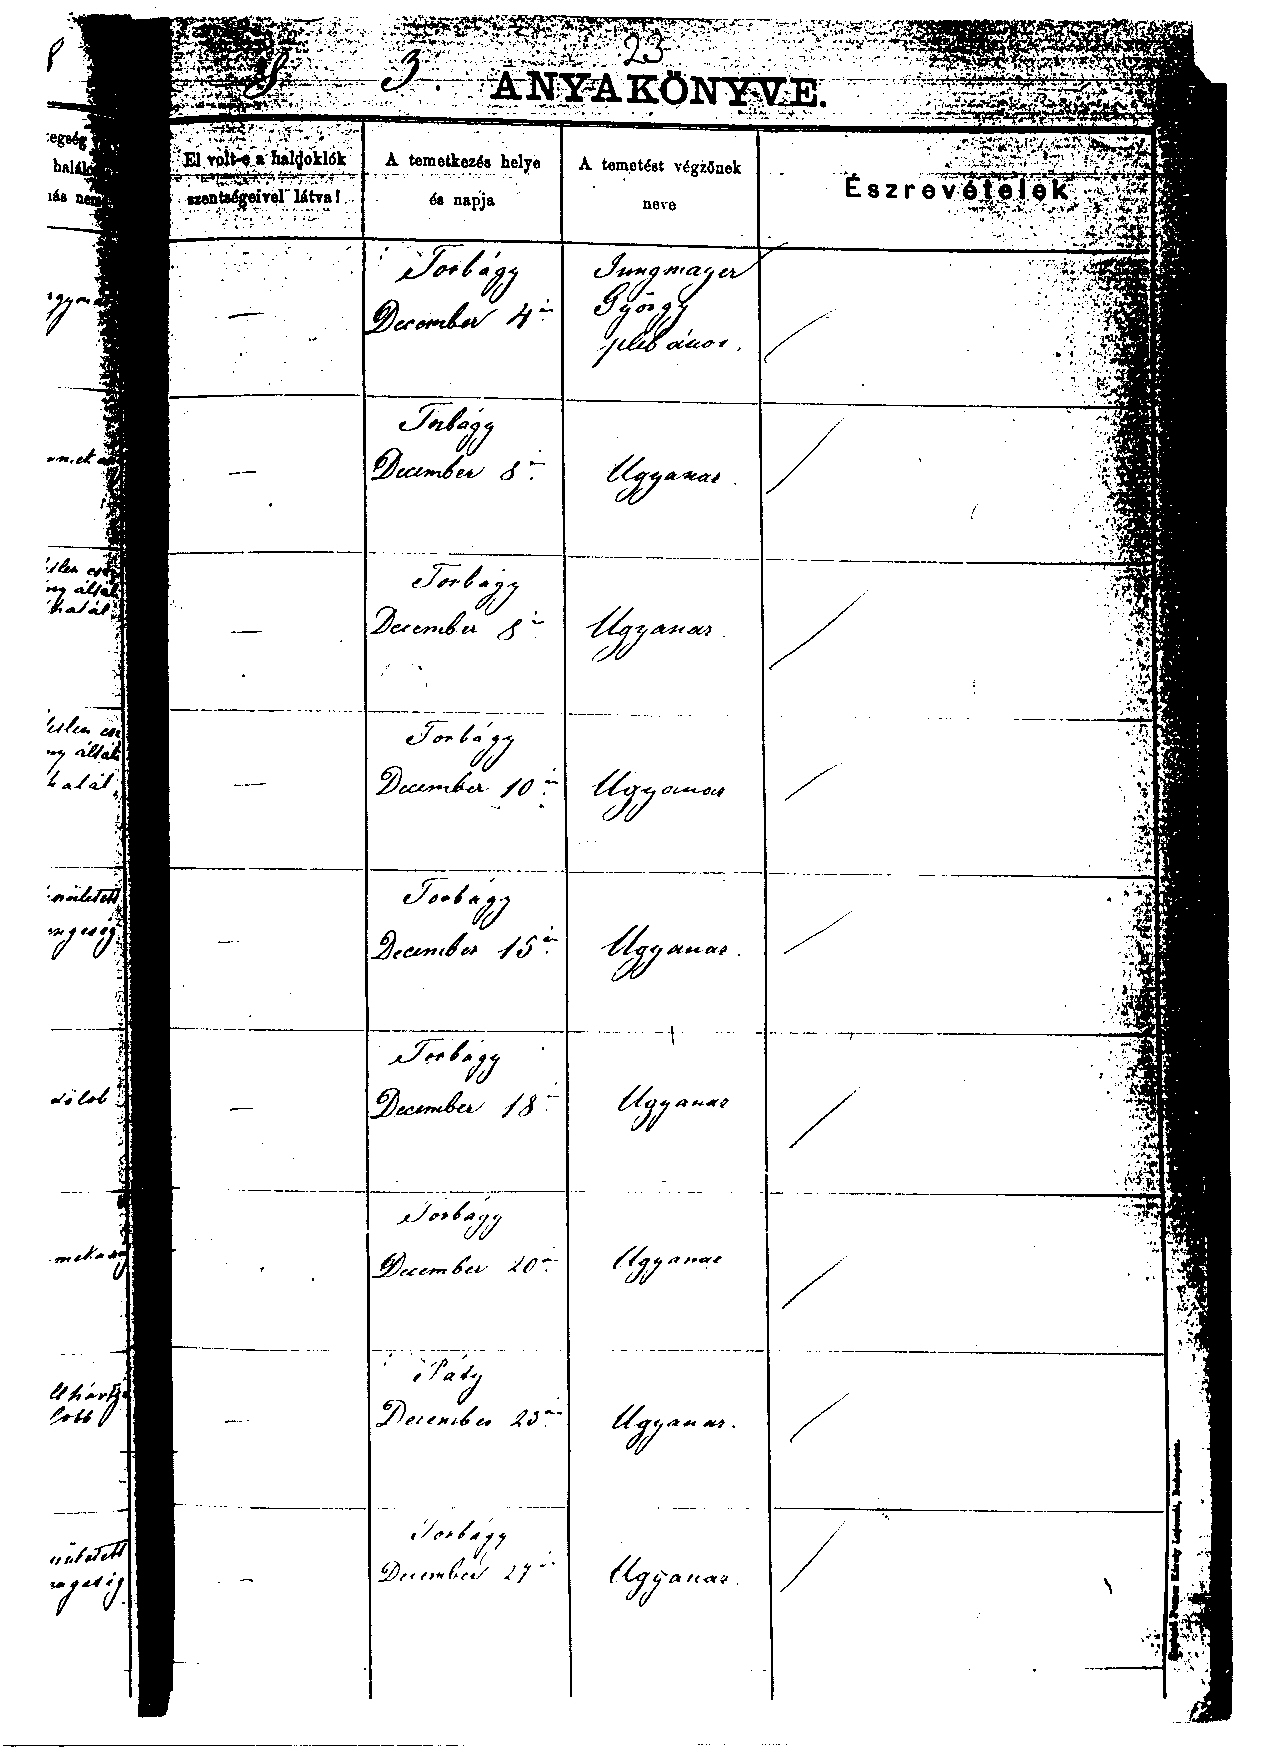 8 3. 23
ANYAKÖNYVE.
El volt-e a haldoklók
szentségeivel látva?
A temetkezés helye
és napja
A temetést végzőnek
neve
Észrevételek
—
Torbágy
December 4én
Jungmayer
György
plebános.
—
Torbágy
December 8én
Ugyanaz.
—
Torbágy
December 8én
Ugyanaz.
—
Torbágy
December 10én
Ugyanaz
—
Torbágy
December 15én
Ugyanaz.
—
Torbágy
December 18én
Ugyanaz
Torbágy
December 20én
Ugyanaz
—
Páty
December 23án
Ugyanaz.
—
Torbágy
December 27én
Ugyanaz.